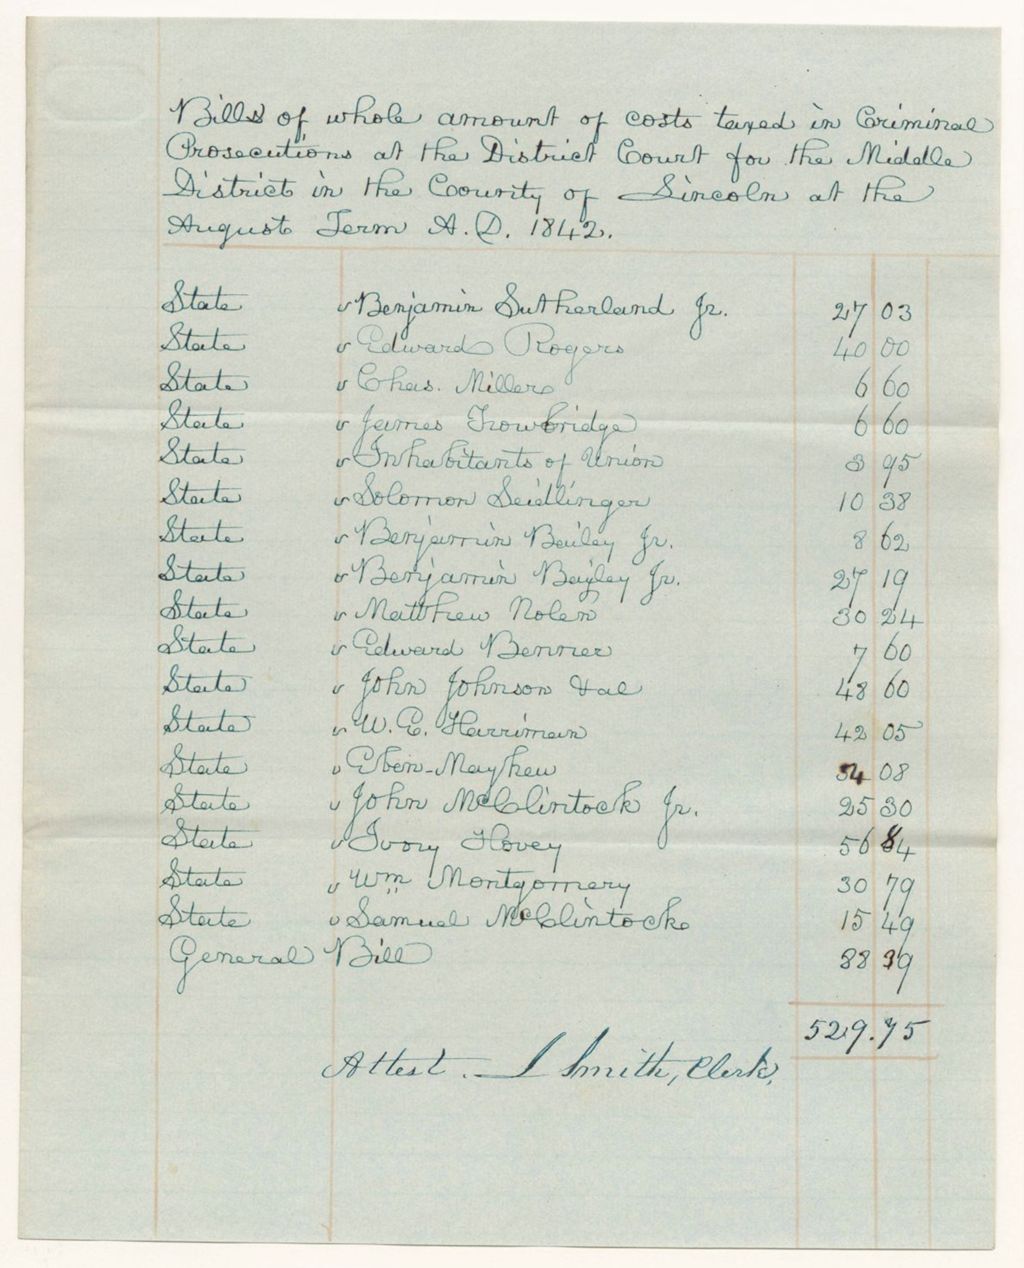 Bills of whole amount of costs taxed in Criminal
Prosecutions at the District Court for the Middle
District in the County of Lincoln at the
August Term A.D. 1842.
State v Benjamin Sutherland Jr. 27 03
State v Edward Rogers 40 00
State v Chas. Miller 6 60
State v James Trowbridge 6 60
State v Inhabitants of Union 3 95
State v Solomon Seidlinger 10 38
State v Benjamin Bailey Jr. 8 62
State v Benjamin Bayley Jr. 27 19
State v Matthew Nolen 30 24
State v Edward Benner 7 60
State v John Johnson &al 48 60
State v W. E. Harriman 42 05
State v Eben Mayhew 54 08
State v John McClintock Jr. 25 30
State v Ivory Hovey 56 84
State v Wm Montgomery 30 79
State v Samuel McClintock 15 49
General Bill 88 39
529.75
Attest. Smith, Clerk.